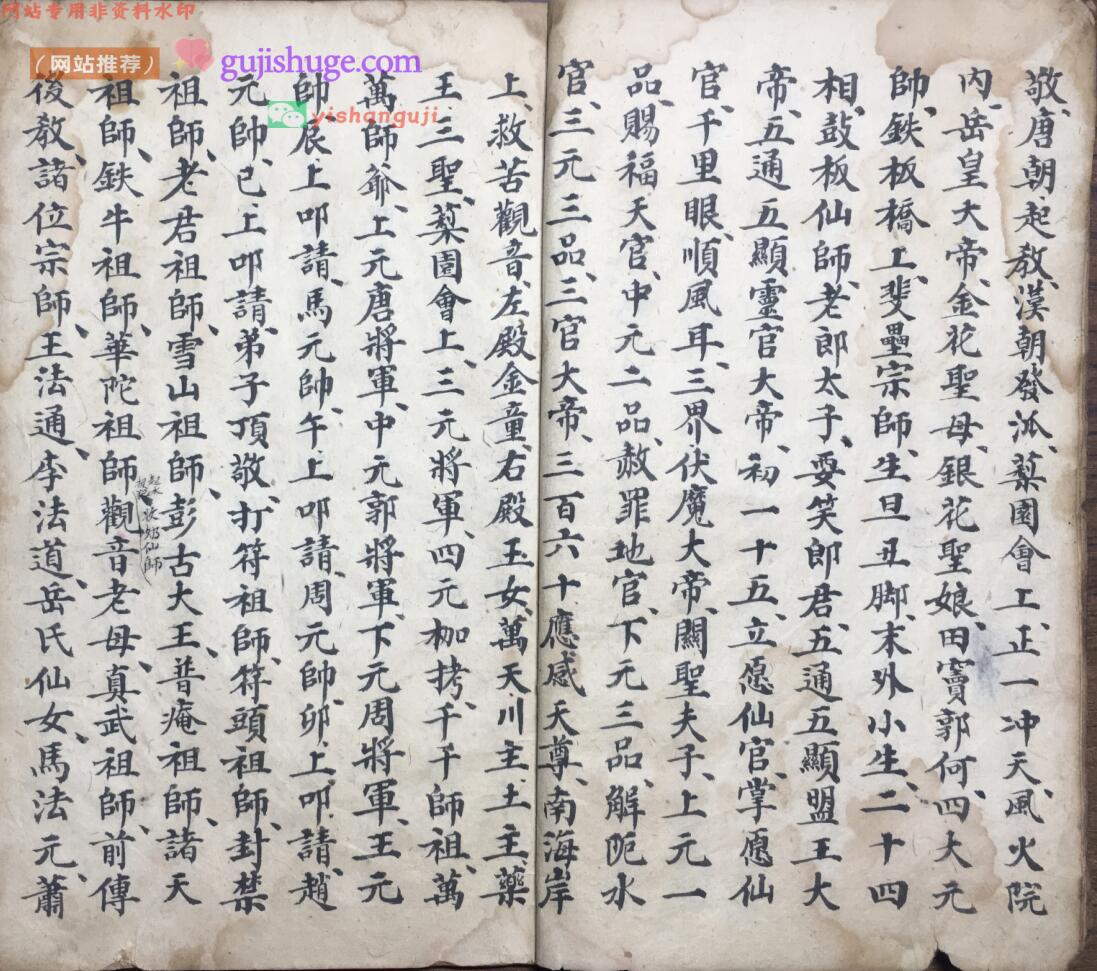 网站专用非资料水印
（网站推荐）
gujishuge.com
yishanguji
敬、唐朝起教、漢朝發派、蔾園會上、正一冲天、風火院
内、岳皇大帝、金花聖母、銀花聖娘、田竇郭何、四大元
師、鉄板橋上、斐壘宗師、生旦丑脚、末外小生、二十四
相、鼓板仙師、老郎太子、耍笑郎君、五通五顯盟王大
帝、五通五顯靈官大帝、初一十五、立愿仙官、掌愿仙
官、千里眼、順風耳、三界伏魔大帝、關聖夫子、上元一
品、賜福天官、中元二品、赦罪地官、下元三品、解阨水
官、三元三品、三官大帝、三百六十應感天尊、南海岸
上、救苦觀音、左殿金童、右殿玉女、萬天川主、土主、藥
王、三聖、蔾園會上、三元將軍、四元枷拷、千千師祖、萬
萬師爺、上元唐將軍、中元郭將軍、下元周將軍、王元
帥、辰上叩請、馬元帥、午上叩請、周元帥、卯上叩請、趙
元帥、已上叩請、弟子頂敬、打符祖師、符頭祖師、封禁
祖師、老君祖師、雪山祖師、彭古大王、普庵祖師、諸天
祖師、鉄牛祖師、華陀祖師、觀音老母、真武祖師、前傳
後教、諸位宗師、王法通、李法道、岳氏仙女、馬法元、蕭